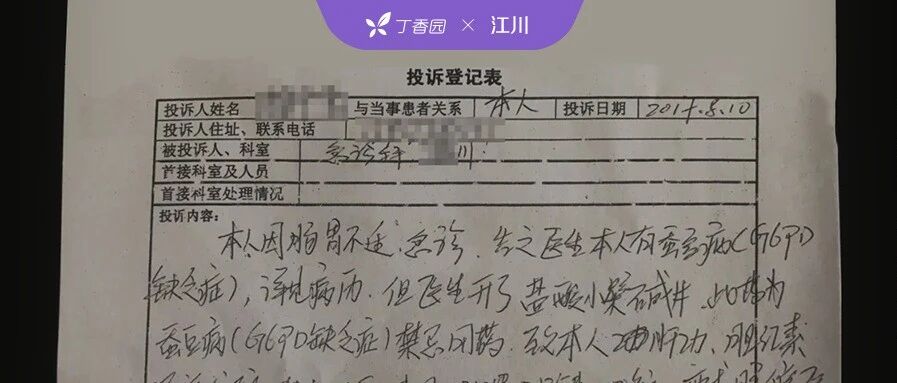 丁香园 × 江川
投诉登记表
投诉人姓名 与当事患者关系 本人 投诉日期 2017.8.10
投诉人住址、联系电话
被投诉人、科室 急诊科 川
首接科室及人员
首接科室处理情况
投诉内容:
本人因肠胃不适,急诊,告之医生本人有蚕豆病(G6PD
缺乏症),详见病历.但医生开了盐酸小檗碱片,此药为
蚕豆病(G6PD缺乏症)禁忌用药,至本人 肝功、胆红素